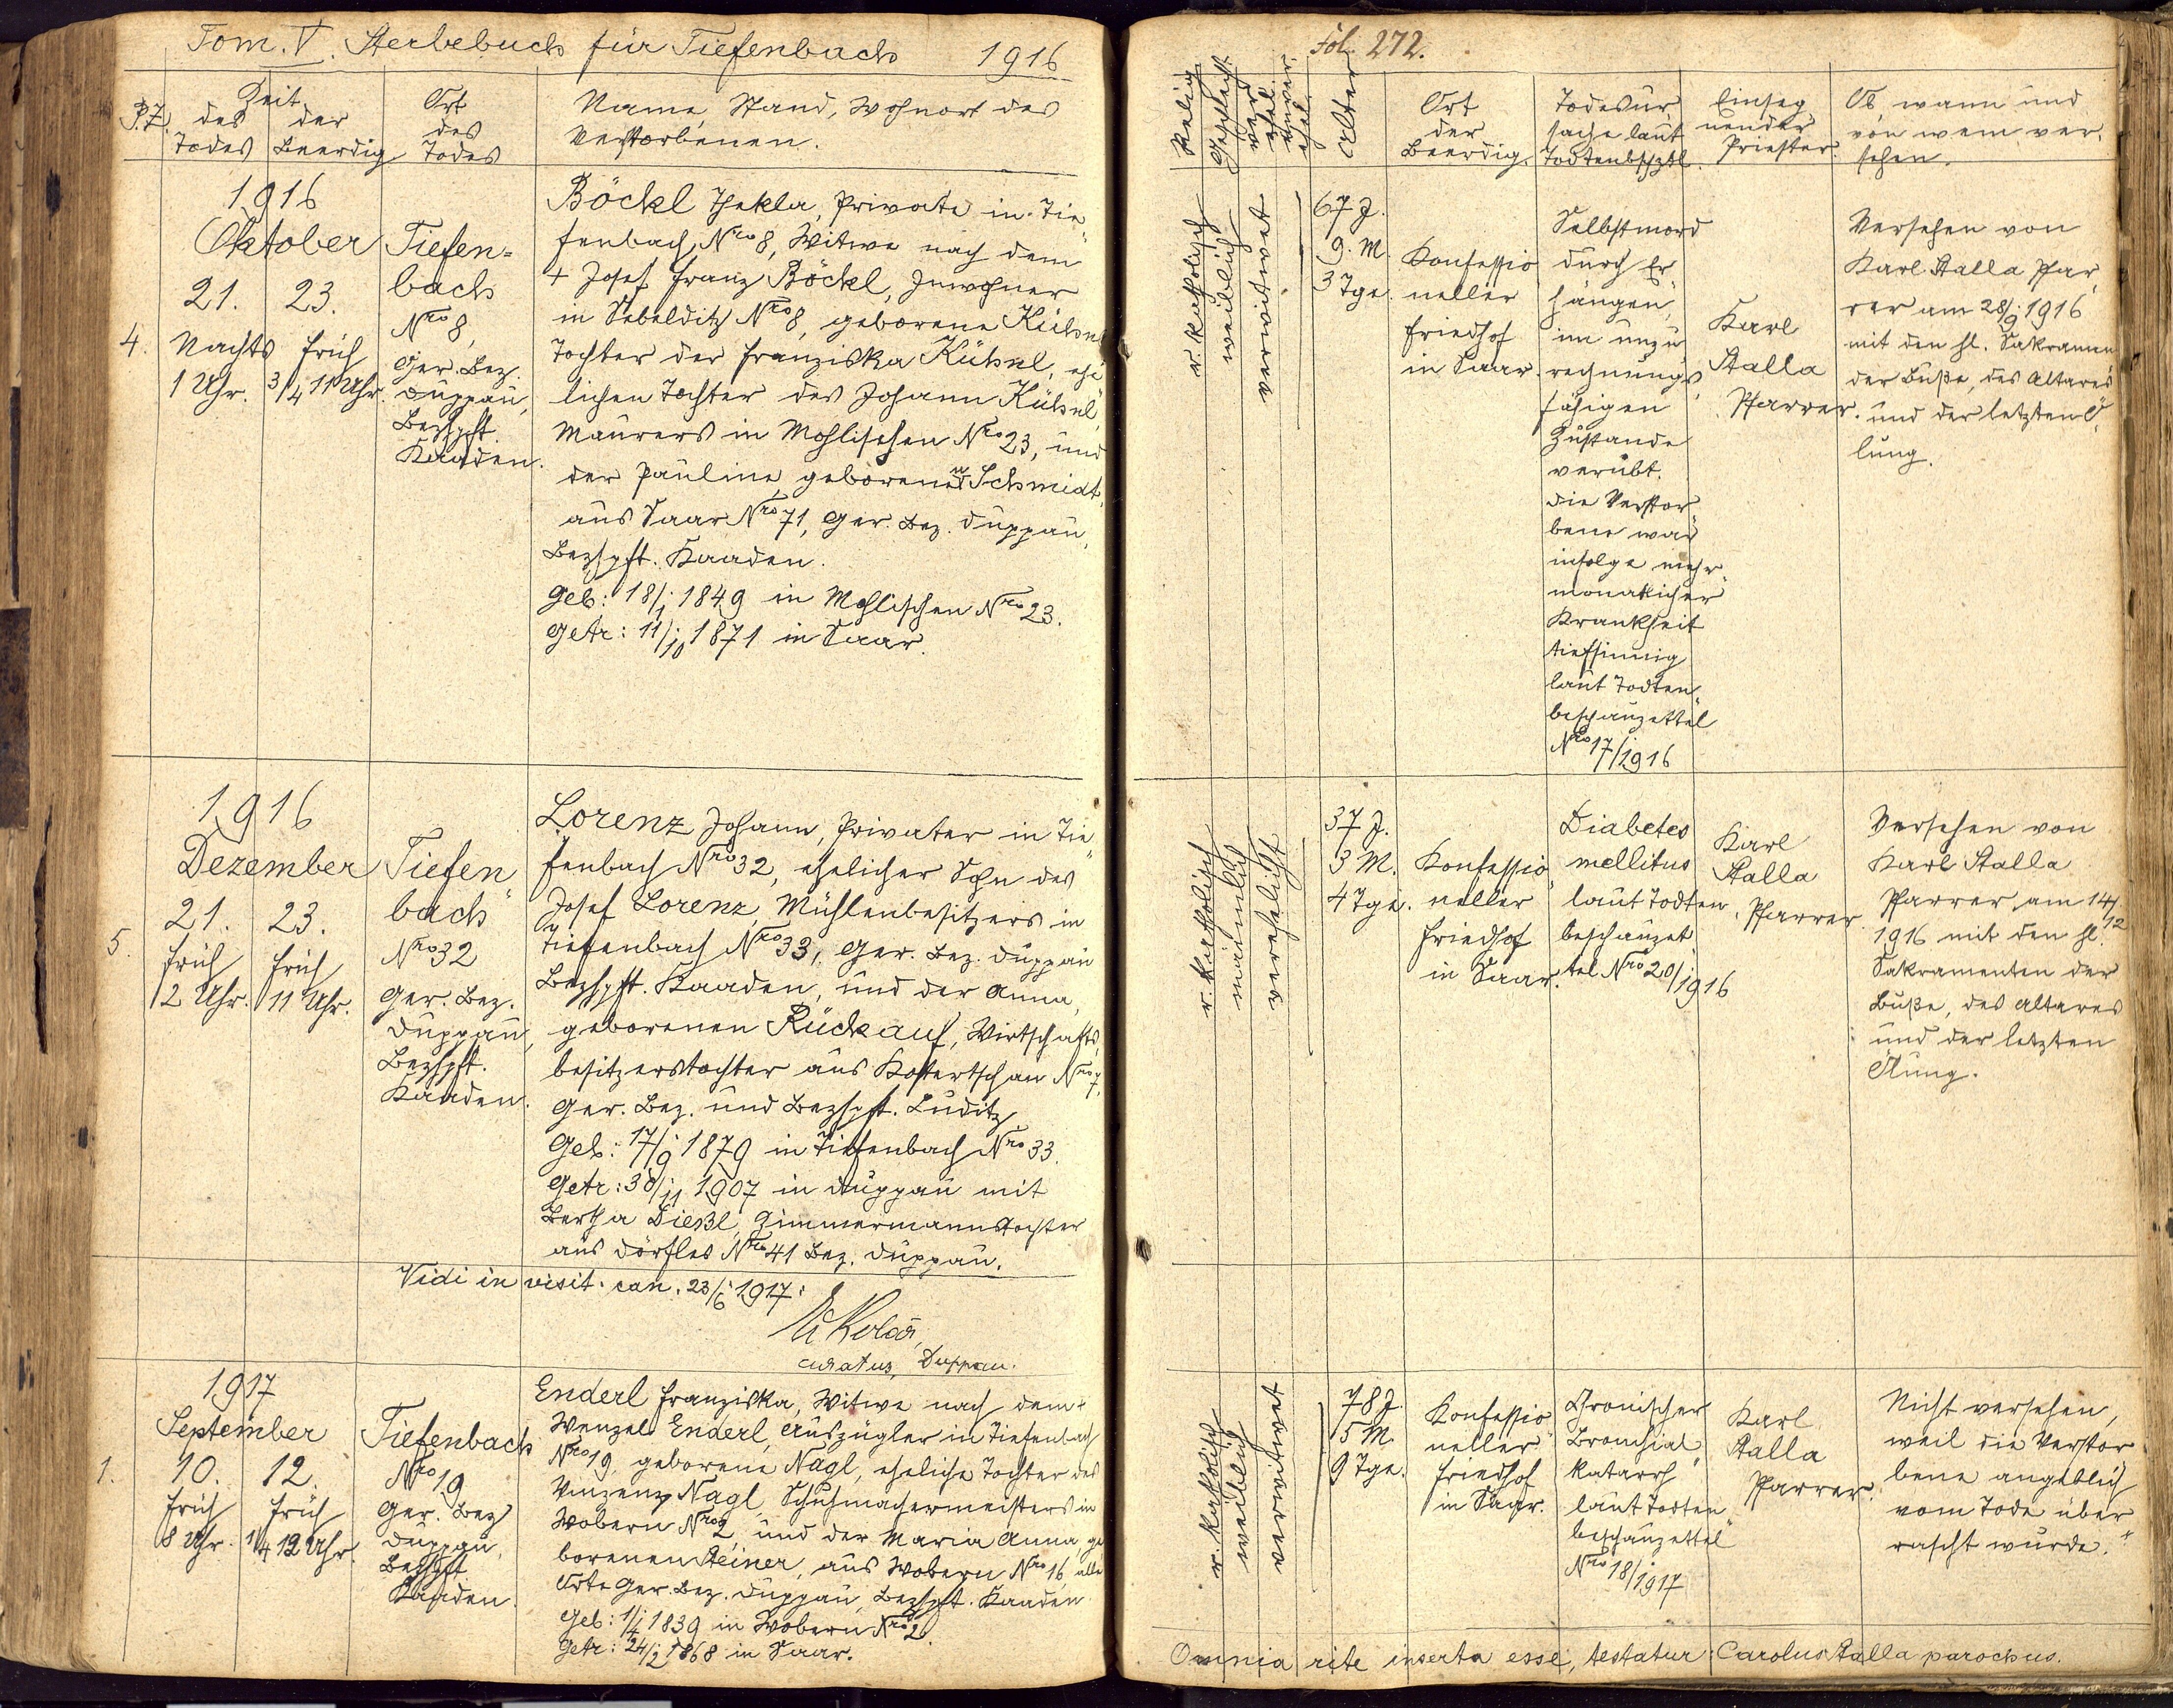 Tom. V. Sterbebuch für Tiefenbach 1916
P.Z.
Zeit
des Todes
der Beerdig
Ort
des
Todes
Name, Stand, Wohnort des
Verstorbenen.
4.
1916
Oktober
21. 23.
Nachts früh
1 Uhr. 3/4 11 Uhr.
Tiefen=
bach
Nro 8,
Ger. Bez.
Duppau,
Bezhpft.
Kaaden.
Böckl Thekla, Private in Tie„
fenbach Nro 8, Witwe nach dem
+ Josef Franz Böckl, Inwohner
in Sebelditz Nro 8, geborene Kühnel
Tochter der Franziska Kühnl, ehe„
lichen Tochter des Johann Kühnl,
Maurers in Mohlischen Nro 23, und
der Pauline, geborenen Schmidt,
aus Saar Nro 71, Ger. Bez. Duppau,
Bezhpft. Kaaden.
Geb: 18/1 1849 in Mohlischen Nro 23.
Getr: 11/10 1871 in Saar.
5.
1916
Dezember
21. 23.
früh früh
2 Uhr. 11 Uhr.
Tiefen„
bach
Nro 32
Ger. Bez.
Duppau,
Bezhpft.
Kaaden.
Lorenz Johann, Privater in Tie„
fenbach Nro 32, ehelicher Sohn des
Josef Lorenz, Mühlenbesitzers in
Tiefenbach Nro 33, Ger. Bez. Duppau
Bezhpft. Kaaden, und der Anna,
geborenen Rückauf, Wirtschafts„
besitzerstochter aus Kostertschan Nro 7,
Ger. Bez. und Bezhpft. Luditz
Geb: 17/9 1879 in Tiefenbach Nro 33.
Getr: 30/11 1907 in Duppau mit
Bertha Dießl, Zimmermannstochter
aus Dörfles Nro 41 Bez. Duppau.
Vidi in visit. can. 23/6 1917:
curatus, Duppau.
1.
1917
September
10. 12.
früh früh
8 Uhr. 1/4 12 Uhr.
Tiefenbach
Nro 19
Ger. Bez
Duppau,
Bezhpft
Kaaden.
Enderl Franziska, Witwe nach dem +
Wenzel Enderl, Auszügler in Tiefenbach
Nro 19, geborene Nagl, eheliche Tochter des
Vinzenz Nagl, Schuhmachermeisters in
Wobern Nro 2, und der Maria Anna, ge
borenen Steiner, aus Wobern Nro 16, alle
Orte Ger. Bez. Duppau, Bezhpft. Kaaden
Geb: 1/4 1839 in Wobern Nro 2.
Getr: 24/2 1868 in Saar.
Fol. 272.
Relig
Geschlecht
ver
ehel.
unver
ehel.
Alter
Ort
der
Beerdig.
Todesur„
sache laut
Todtenbschztl.
Einseg„
nender
Priester.
Ob, wann und
von wem ver„
sehen.
r. katholisch
weiblich
verwitwet
67 J.
9. M.
3 Tge.
Konfessio
neller
Friedhof
in Saar.
Selbstmord
durch Er„
hängen,
im unzu„
rechnungs„
fähigen
Zustande
verübt.
Die Verstor„
bene war
infolge mehr„
monatlicher
Krankheit
tiefsinnig
laut Todten„
beschauzettel
Nro 17/1916
Karl
Stalla
Pfarrer.
Versehen von
Karl Stalla Pfar„
rer am 28/9 1916
mit den hl. Sakramen
der Buße, des Altares
und der letzten Ö„
lung.
r. katholisch
männlich
verehelicht
37 J.
3 M.
4 Tge.
Konfessio„
neller
Friedhof
in Saar.
Diabetes
mellitus
laut Todten„
beschauzet„
tel Nro 20/1916
Karl
Stalla
Pfarrer.
Versehen von
Karl Stalla
Pfarrer am 14/12
1916 mit den hl.
Sakramenten der
Buße, des Altares
und der letzten
Ölung.
r. katholisch
weiblich
verwitwet
78 J.
5 M.
9 Tge.
Konfessio„
neller
Friedhof
in Saar.
Chronischer
Bronchial„
katarrh
laut Todten„
beschauzettel
Nro 18/1917
Karl
Stalla
Pfarrer.
Nicht versehen,
weil die Verstor„
bene angeblich
vom Tode über„
rascht wurde. +
Omnia rite inserta esse, testatur: Carolus Stalla parochus.